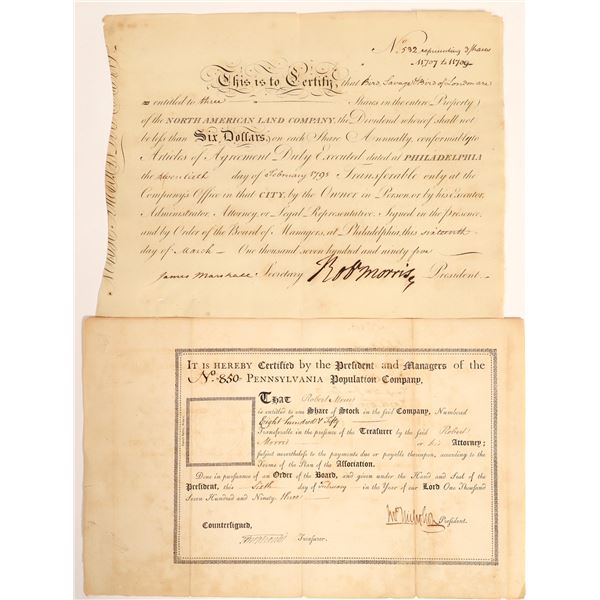 No 532 representing 3 shares
11707 to 11709
This is to Certify, that Bird Savage & Bird of London are
entitled to three Shares in the entire Property
of the NORTH AMERICAN LAND COMPANY, the Dividend whereof shall not
be less than Six Dollars, on each Share Annually, conformably to
Articles of Agreement Duly Executed dated at PHILADELPHIA
the twentieth day of February 1795 Transferable only at the
Company's Office in that CITY, by the Owner in Person, or by his Executor,
Administrator, Attorney, or Legal Representative. Signed in the presence,
and by Order of the Board of Managers, at Philadelphia, this sixteenth
day of March One thousand seven hundred and ninety five
James Marshall Secretary Rob Morris President
IT IS HEREBY Certified by the President and Managers of the
No. 850 PENNSYLVANIA Population Company,
THAT Robert Morris
is entitled to one Share of Stock in the said Company, Numbered
Eight hundred & fifty
Transferable in the presence of the Treasurer by the said Robert
Morris or his Attorney;
subject nevertheless to the payments due or payable thereupon, according to the
Terms of the Plan of the Association.
Done in pursuance of an Order of the Board, and given under the Hand and Seal of the
President, this Sixth day of February in the Year of our Lord One Thousand
Seven Hundred and Ninety three
Jno Nicholson President.
Countersigned,
Treasurer.